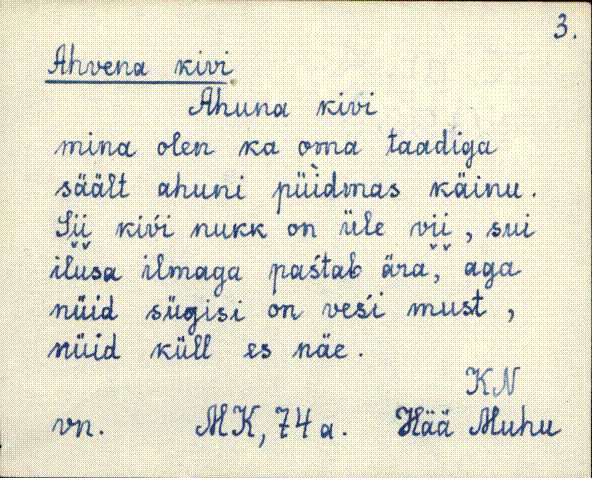 3.
Ahvena kivi
Ahuna kivi
mina olen ka oma taadiga
säält ahuni püìdmas käinu.
Sii kivi nukk on üle vii, sui
ilusa ilmaga paśtab ära, aga
nüid sügisi on veśi must,
nüid küll es näe.
KN
vn. MK, 74 a. Hää Muhu